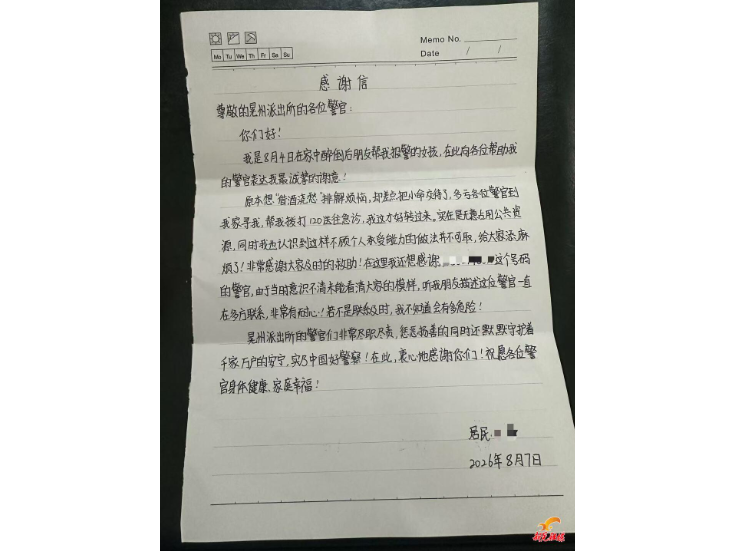 Memo No.
Date / /
Mo Tu We Th Fr Sa Su
感谢信
尊敬的吴州派出所的各位警官：
你们好！
我是8月4日在家中醉倒后朋友帮我报警的女孩，在此向各位帮助我
的警官表达我最诚挚的谢意！
原本想“借酒浇愁”排解烦恼，却差点把小命交待了，多亏各位警官到
我家寻我，帮我拨打120送往急诊，我这才好转过来。实在是无意占用公共资
源，同时我也认识到这样不顾个人承受能力的做法并不可取，给大家添麻
烦了！非常感谢大家及时的救助！在这里我还想感谢 这个号码
的警官，由于当时意识不清未能看清大家的模样，听我朋友描述这位警官一直
在多方联系，非常有耐心！若不是联系及时，我不知道会有多危险！
吴州派出所的警官们非常尽职尽责，惩恶扬善的同时还默默守护着
千家万户的安宁，实乃中国好警察！在此，衷心地感谢你们！祝愿各位警
官身体健康、家庭幸福！
居民：
2026年8月7日